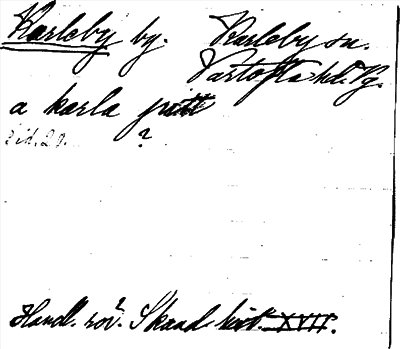 Karleby by. Karleby sn.
Vartofta hd. Vg.
a karla pitt
Sid. 29. ?
Handl. rör. Skand. hist. XVII.